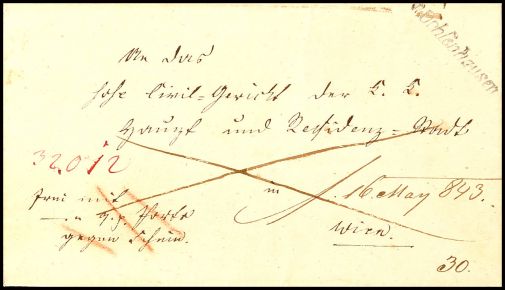 An das
hohe Civil-Gericht der k. k.
Haupt und Residenz-Stadt
32.012
frei mit
Porto
gegen Schein.
in
16 May 843.
Wien.
30.